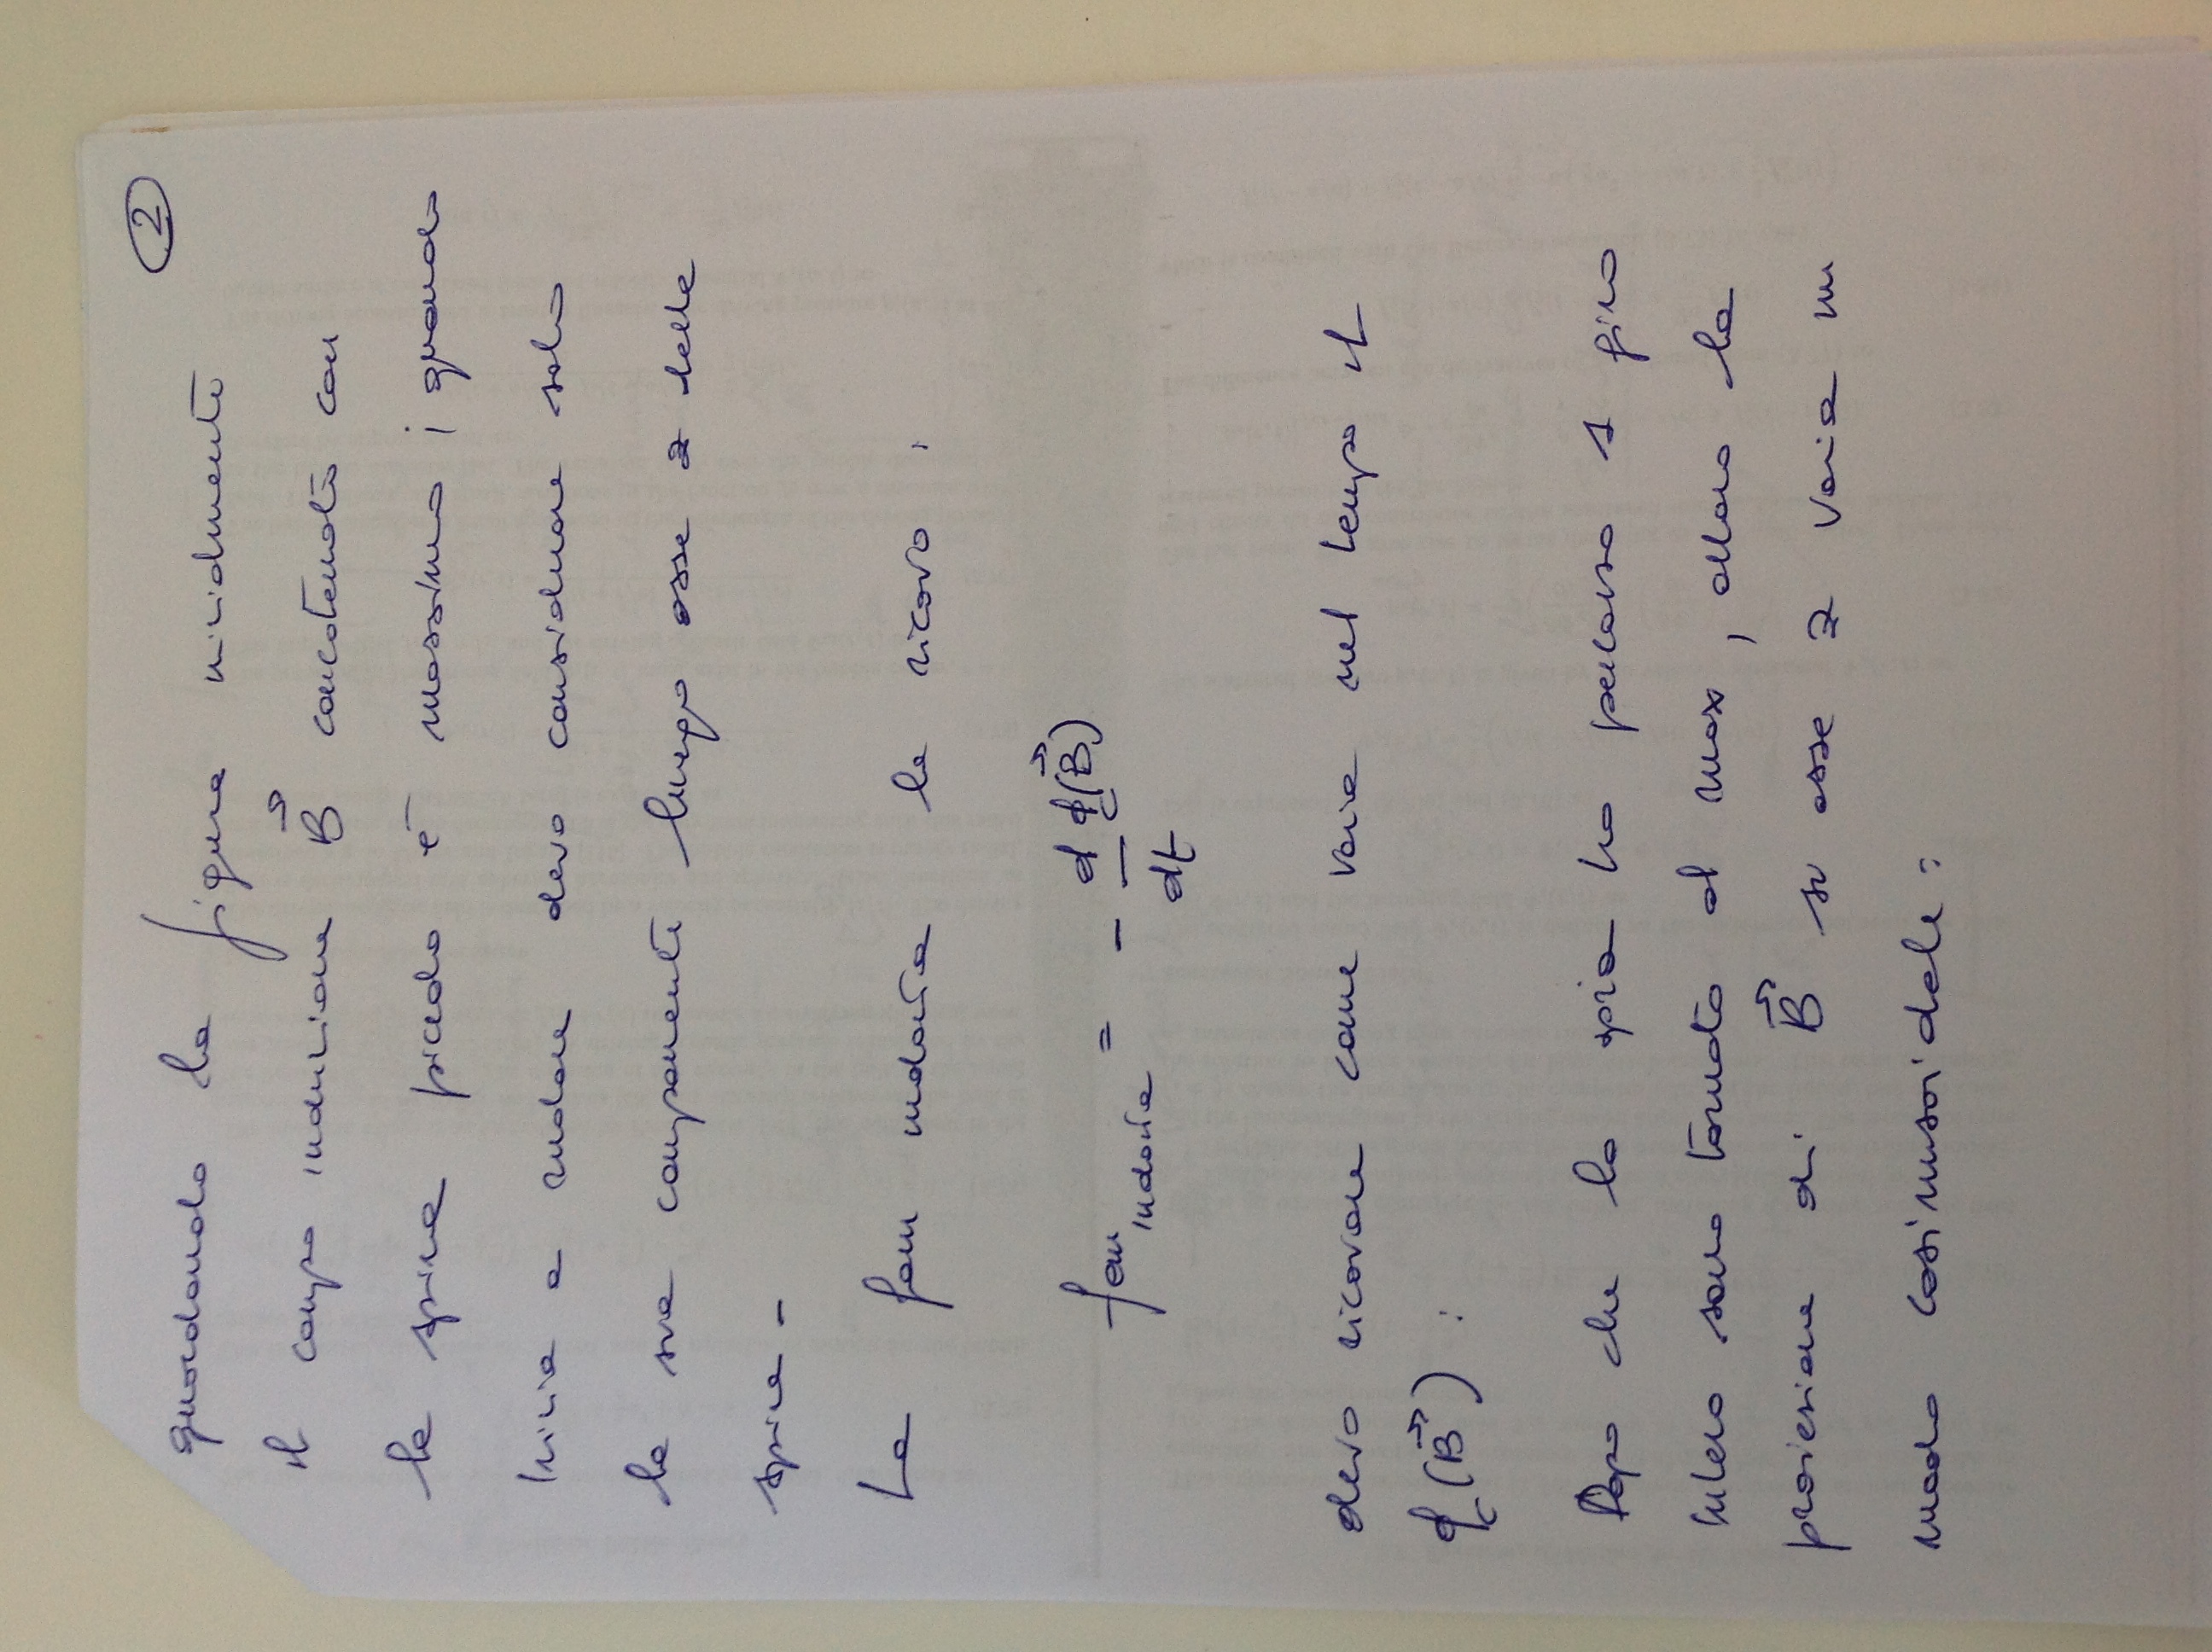 2
guardando la figura inizialmente
il campo induzione B⃗ concatenato con
la spira piccola è massimo ; quando
inizia a ruotare devo considerare solo
la sua componente lungo asse z della
spira -
La fem indotta la ricavo :
fem indotta = - d ϕc(B⃗) / dt
devo ricavare come varia nel tempo il
ϕc(B⃗) :
Dopo che la spira ha percorso 1 giro
intero sono tornato al max , allora la
proiezione di B⃗ su asse z varia in
modo cosinusoidale :